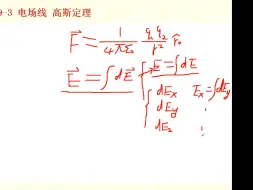 9-3 电场线 高斯定理
F⃗ = 1/(4πε₀) q₁q₂/r² r⃗₀
E⃗ = ∫dE⃗ { E = ∫dE
dEx Ex = ∫dEx
dEy
dEz